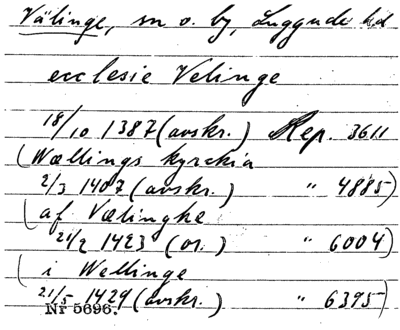 Välinge, sn o. by, Luggude hd
ecclesie Velinge
18/10 1387 (avskr.) Rep. 3611
(Wællings kyrckia
2/3 1407 (avskr.) " 4885)
(af Vælinghe
21/2 1423 (or.) " 6004)
(i Wellinge
21/5 1429 (avskr.) " 6395)
Nr 5696.